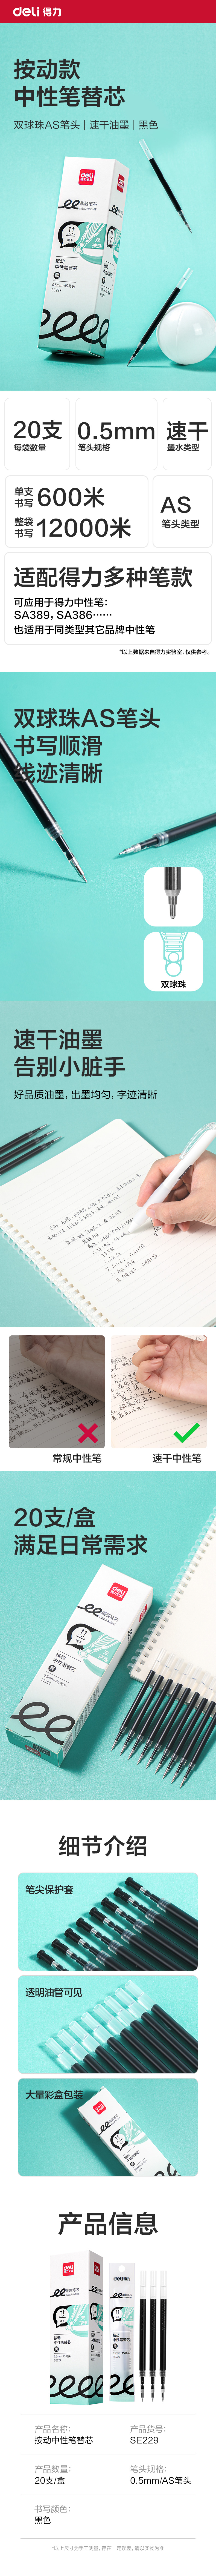 deli 得力
按动款
中性笔替芯
双球珠AS笔头 | 速干油墨 | 黑色
deli
得力文具
ee刷题笔芯
按动
中性笔替芯
黑
SE229
20支
每袋数量
0.5mm
笔头规格
速干
墨水类型
单支
书写 600米
整袋
书写 12000米
AS
笔头类型
适配得力多种笔款
可应用于得力中性笔:
SA389, SA386······
也适用于同类型其它品牌中性笔
*以上数据来自得力实验室,仅供参考。
双球珠AS笔头
书写顺滑
线迹清晰
双球珠
速干油墨
告别小脏手
好品质油墨, 出墨均匀, 字迹清晰
常规中性笔
速干中性笔
20支/盒
满足日常需求
deli
ee刷题笔芯
按动
中性笔替芯
黑
SE229
细节介绍
笔尖保护套
透明油管可见
大量彩盒包装
deli
按动
中性笔替芯
产品信息
deli
deli得力
按动
中性笔替芯
按动
中性笔替芯
产品名称:
按动中性笔替芯
产品货号:
SE229
产品数量:
20支/盒
笔头规格:
0.5mm/AS笔头
书写颜色:
黑色
*以上尺寸为手工测量, 存在一定误差, 请以实物为准